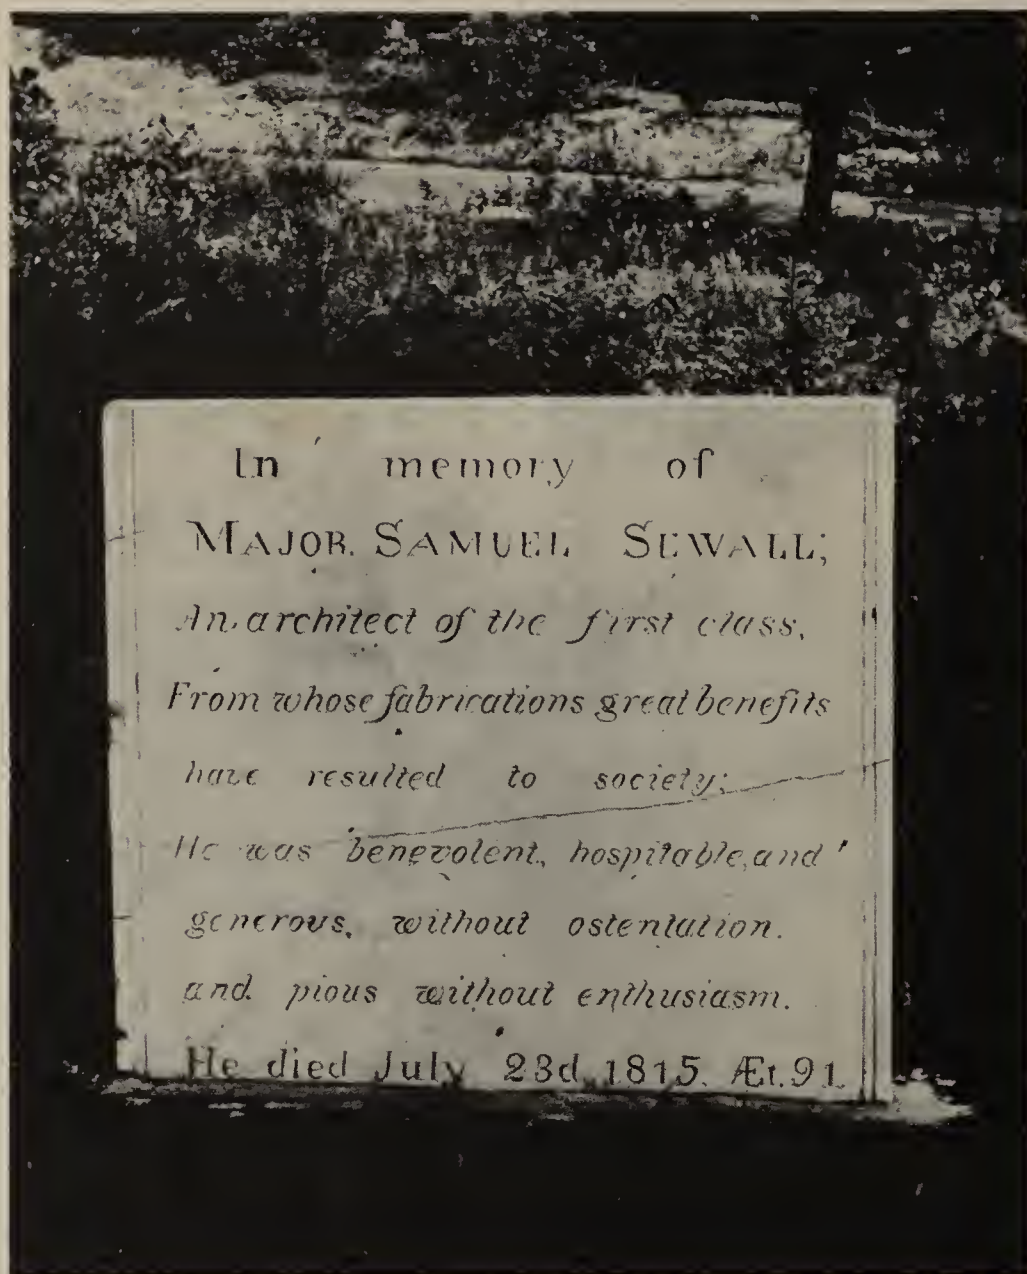 In memory of
MAJOR SAMUEL SEWALL;
An architect of the first class,
From whose fabrications great benefits
have resulted to society;
He was benevolent, hospitable, and
generous, without ostentation.
and pious without enthusiasm.
He died July 23d, 1815. Æt. 91.